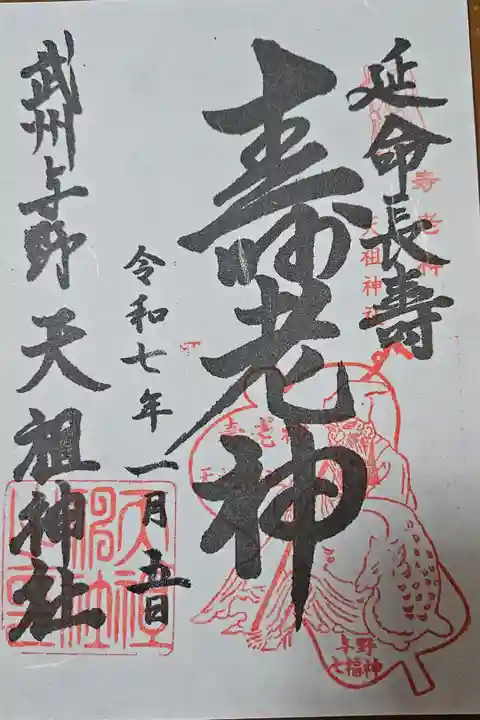 延命長壽
寿老神
天祖神社
寿老神
令和七年一月五日
武州与野 天祖神社
与野
七福神